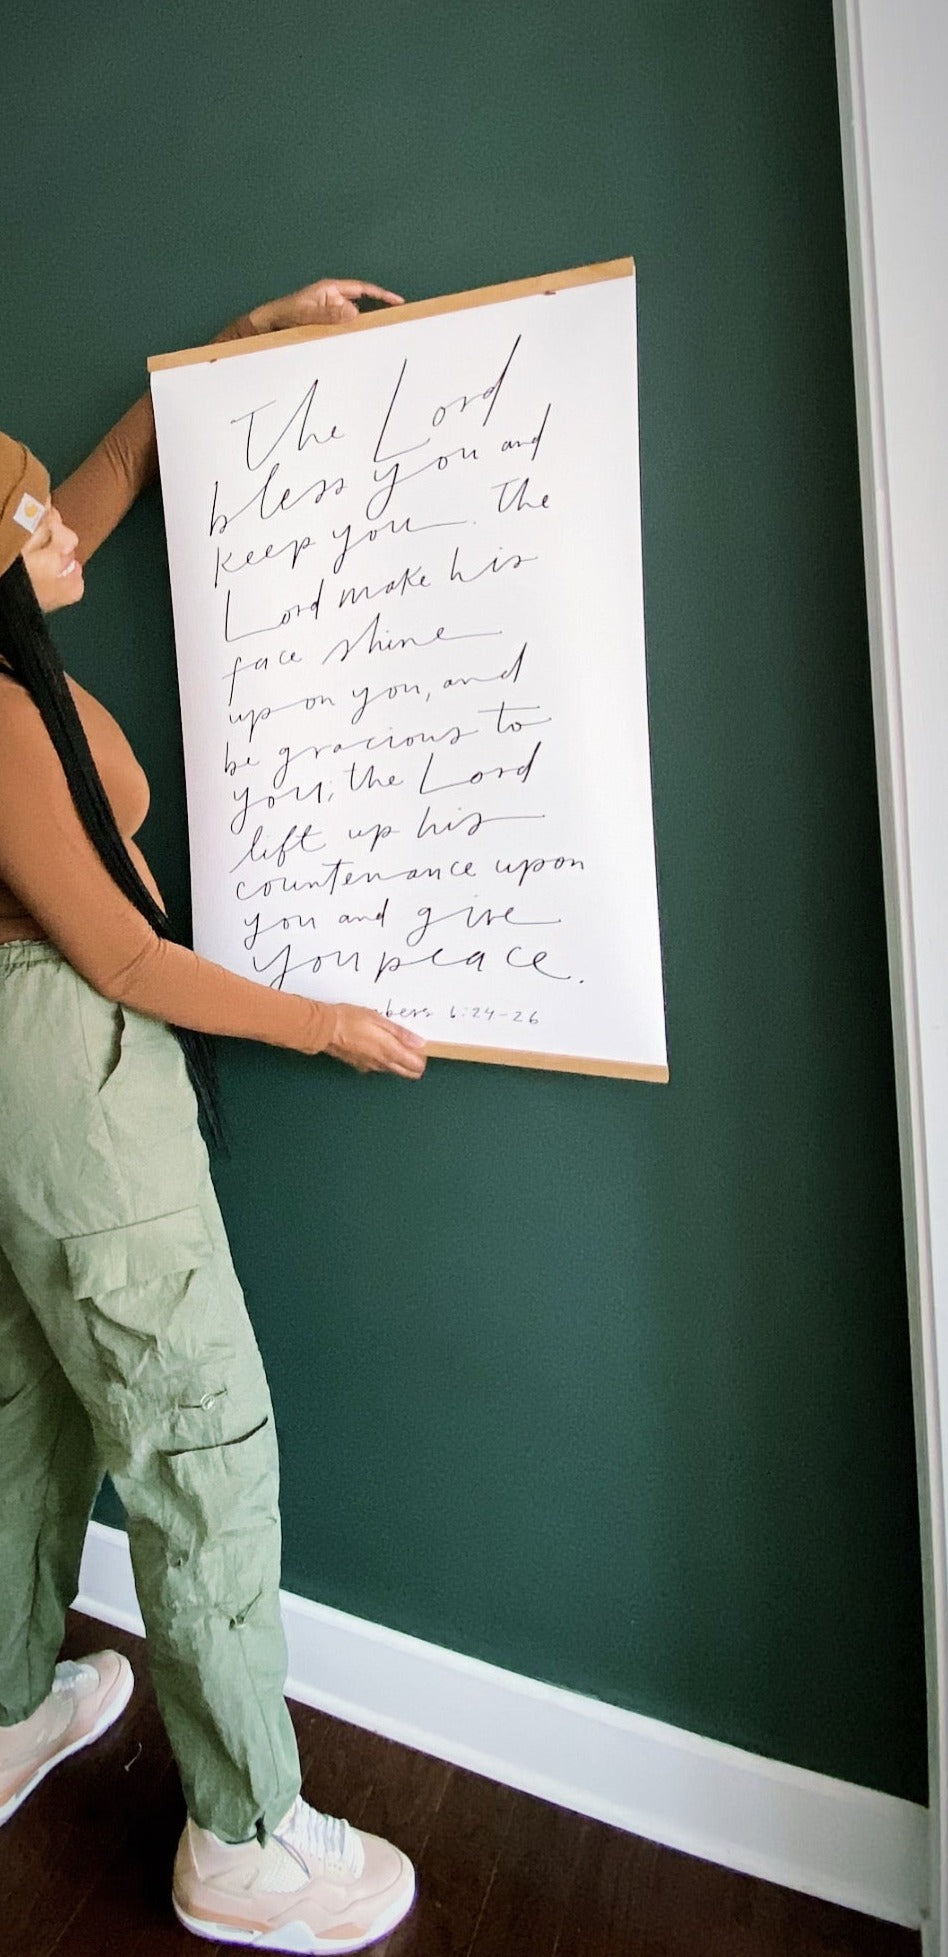 The Lord
bless you and
keep you. The
Lord make his
face shine
upon you, and
be gracious to
you; the Lord
lift up his
countenance upon
you and give
you peace.
6:24-26